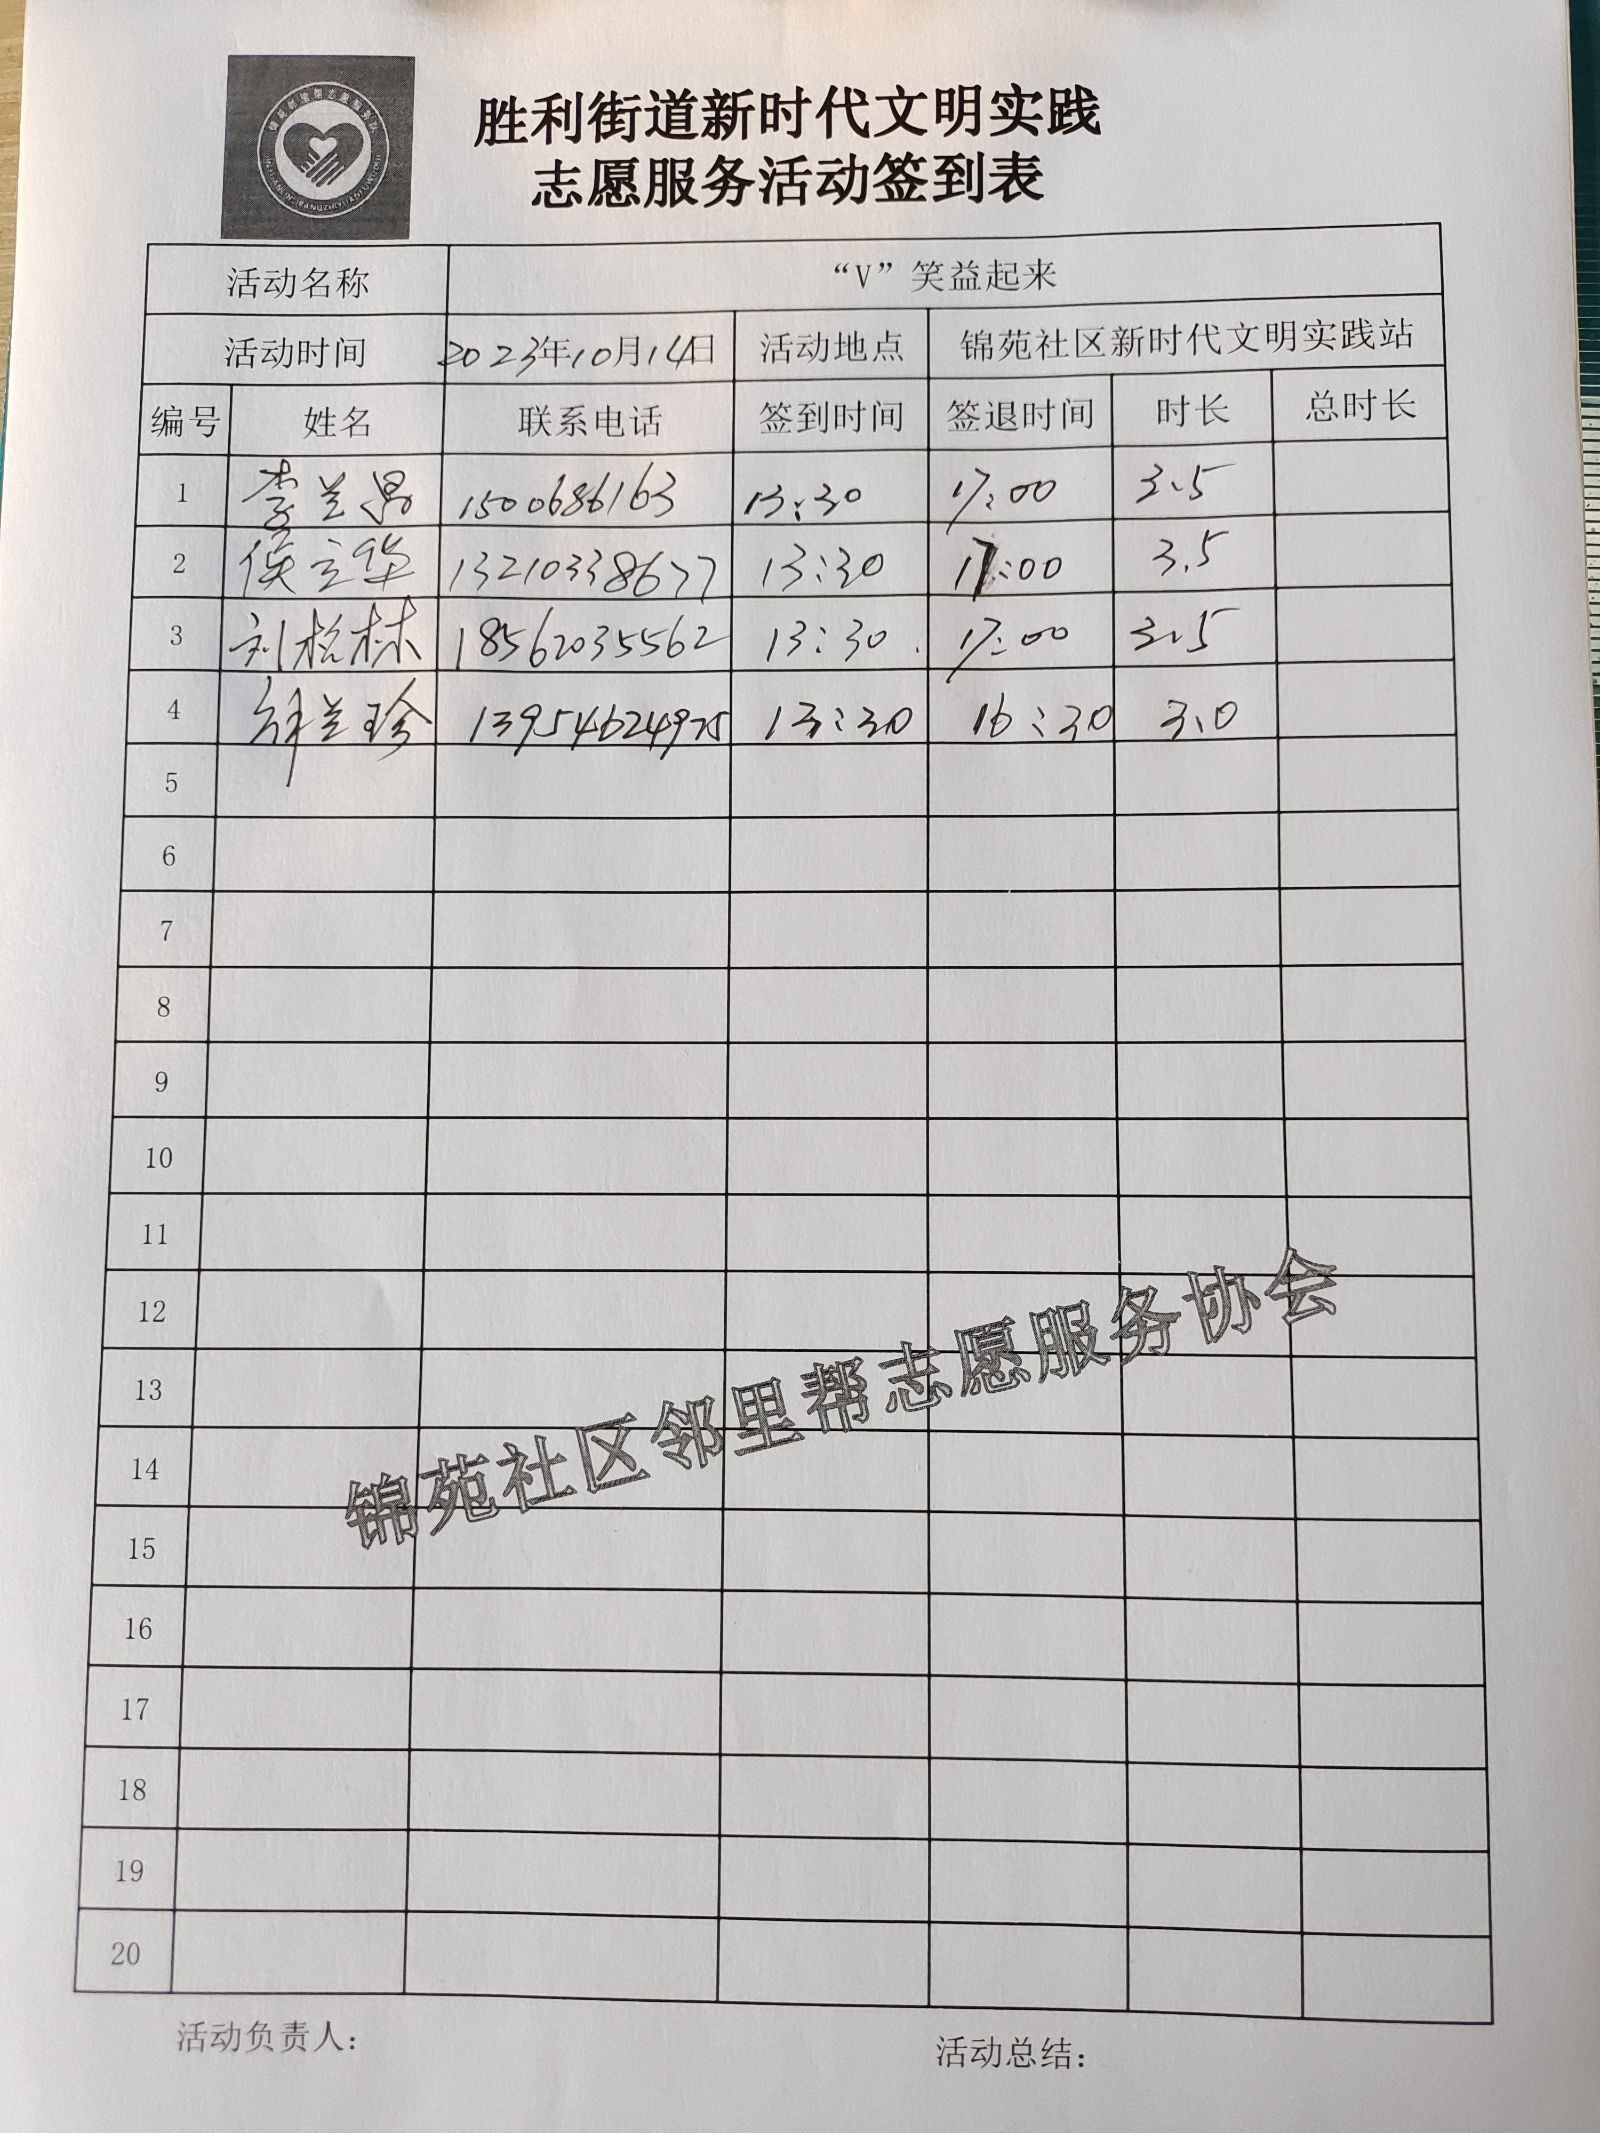 胜利街道新时代文明实践
志愿服务活动签到表
活动名称 “V”笑益起来
活动时间 2023年10月14日 活动地点 锦苑社区新时代文明实践站
编号 姓名 联系电话 签到时间 签退时间 时长 总时长
1 李兰 1500686163 13:30 17:00 3.5
2 侯立华 13210338677 13:30 17:00 3.5
3 刘松林 18562035562 13:30 17:00 3.5
4 兰珍 13954624975 13:30 16:30 3.0
5
6
7
8
9
10
11
12
13
14
15
16
17
18
19
20
锦苑社区邻里帮志愿服务协会
活动负责人: 活动总结: